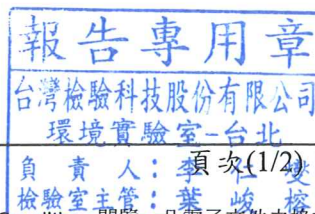 報告專用章
台灣檢驗科技股份有限公司
環境實驗室-台北
頁次(1/2)
負責人：李
檢驗室主管：葉峻榕